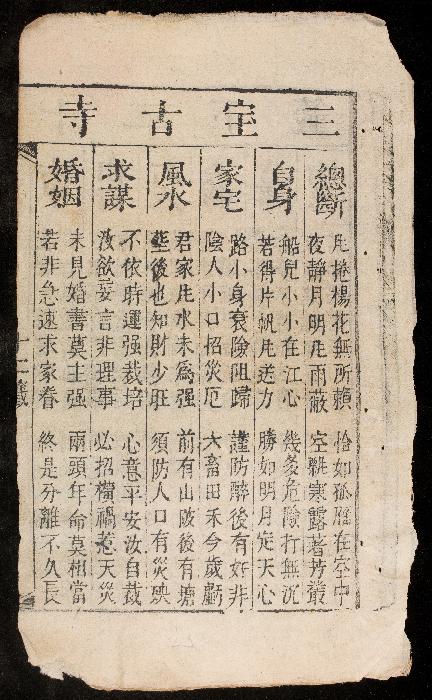 三宝古寺
總斷
风捲楊花無所賴 恰如孤雁在空中
夜靜月明风雨蔽 空飛寒露著芳叢
自身
船兒小小在江心 幾多危險打無沉
若得片帆风送方 勝如明月定天心
家宅
路小身衰險阻歸 謹防醉後有奸非
陰人小口招災厄 六畜田禾今歲虧
風水
君家风水未為强 前有山陂後有塘
塋後也知財少旺 須防人口有災殃
求謀
不依時運强裁培 心意平安汝自裁
汝欲妄言非理事 必招橫禍惹天災
婚姻
未見婚書莫主强 兩頭年命莫相當
若非急速求家眷 終是分離不久長
十二籤